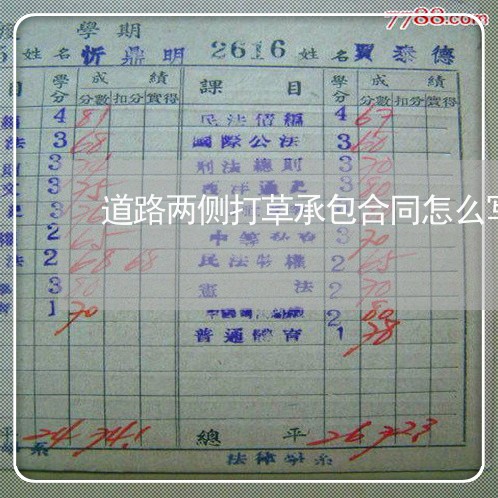 7788.com
學期
5 姓名 忻鼎明 2616 姓名 賈泰德
目 學分 成績 課目 學分 成績
分數 扣分 實得 分數 扣分 實得
4 81 民法債編 4 67
法 3 68 國際公法 3 60
3 刑法總則 3 70
3 75 西洋通史 3 80
道路两侧打草承包合同怎么写
2 65 3 70
法 2 68 68 民法物權 2 65
3 80 憲法 2 70
1 70 2 80
普通體育 1 78
平 24 74.1 總平 26 72.3
系 法律學系